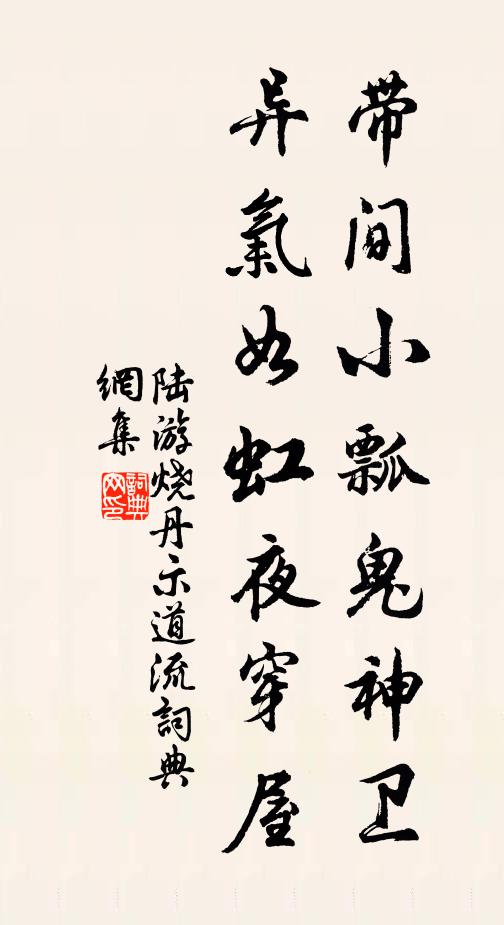 带间小瓢鬼神卫
异氣如虹夜穿屋
陆游烧丹示道流詞典
網集
詞典
网印